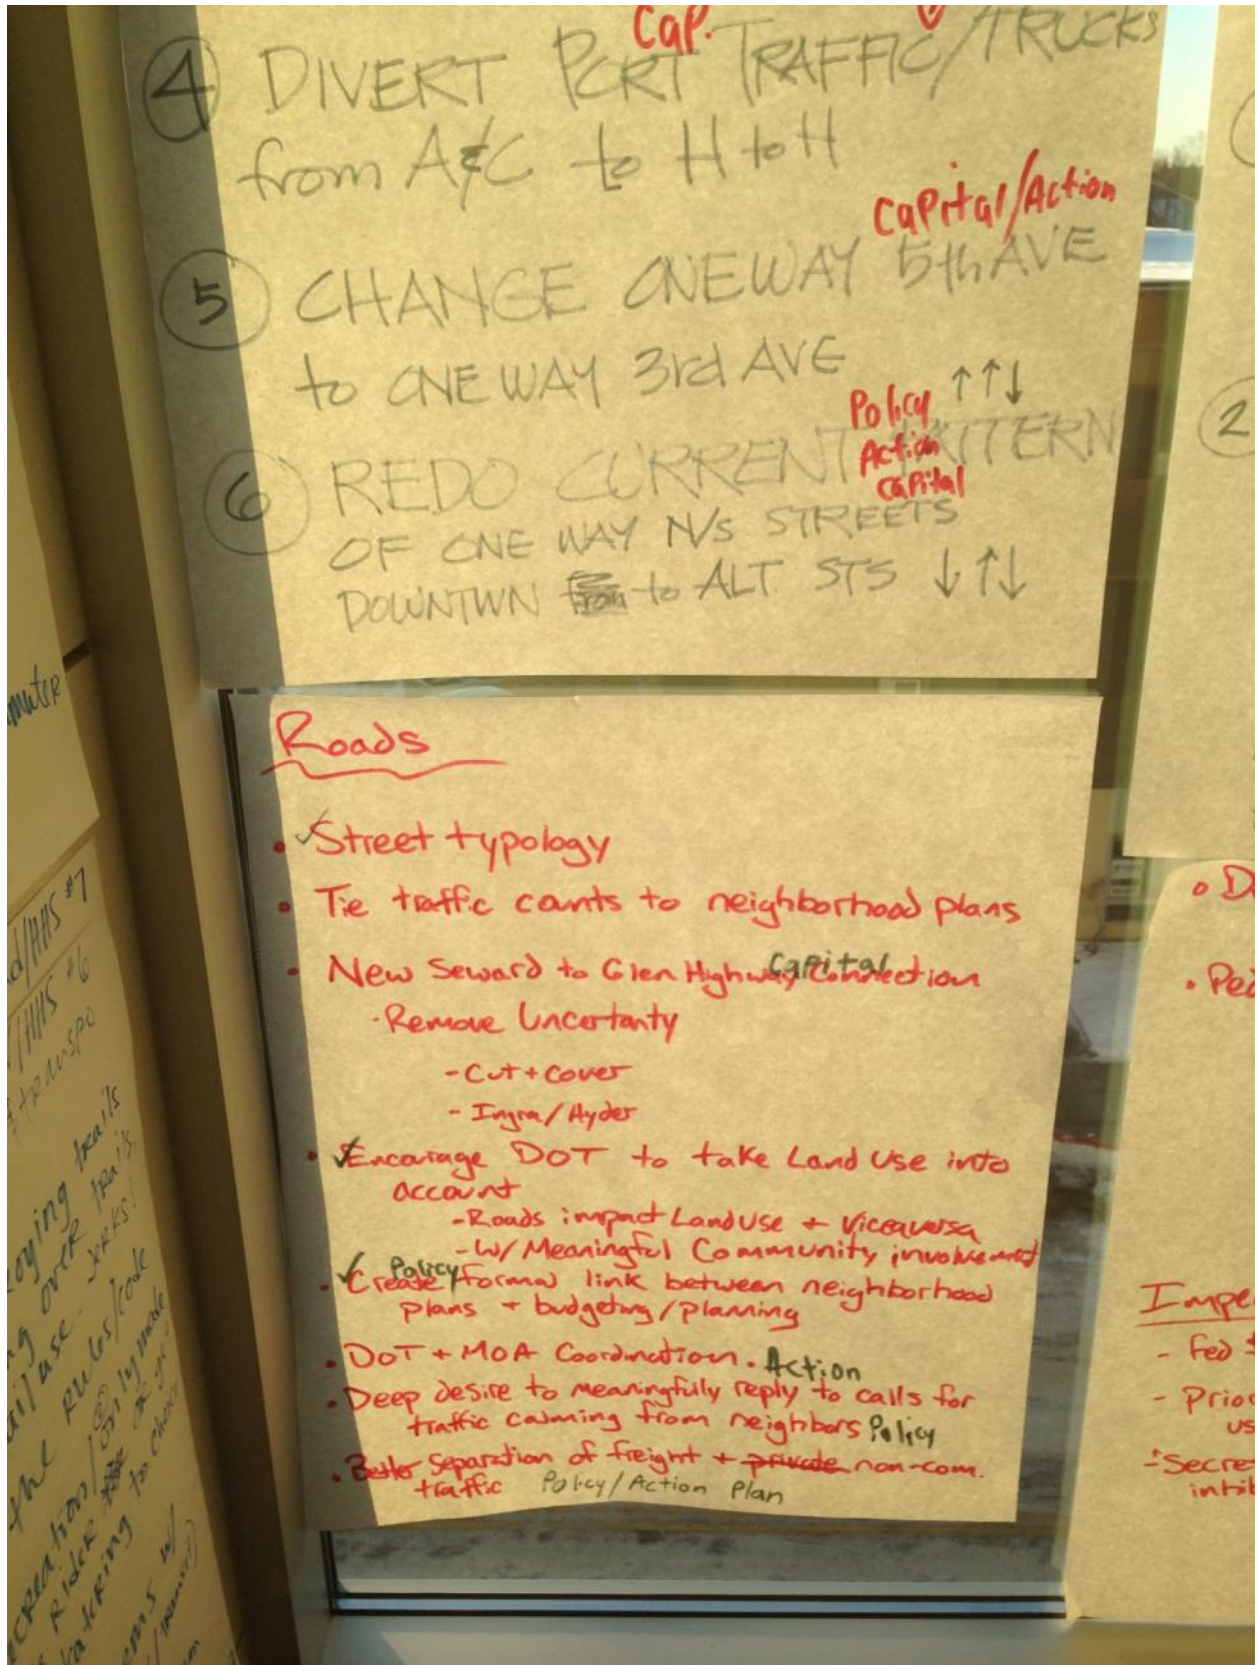 Cap.
④ DIVERT PORT TRAFFIC/TRUCKS
from A&C to H to H
Capital/Action
⑤ CHANGE ONEWAY 5th AVE
to ONE WAY 3rd AVE
Policy ↑↑↓
Action
Capital
⑥ REDO CURRENT PATTERN
OF ONE WAY N/S STREETS
DOWNTWN to ALT STS ↓↑↓
Roads
• ✓Street typology
• Tie traffic counts to neighborhood plans
• New Seward to Glen Highway Connection Capital
- Remove Uncertanty
- Cut + Cover
- Ingra/Hyder
• ✓Encourage DOT to take Land Use into
account
- Roads impact Land Use + Viceaversa
- W/ Meaningful Community involvement
Policy
• ✓Create formal link between neighborhood
plans + budgeting/planning
• DOT + MOA Coordination. Action
• Deep desire to meaningfully reply to calls for
traffic calming from neighbors Policy
• Better separation of freight + private non-com.
traffic Policy/Action Plan
2
#7
/HHS #6
transpo
trails
over trails
use. JERKS!
the rules/code
only mode
Rider
to choice
• D
• Ped
Impe
- Fed $
- Prio
us
- Secre